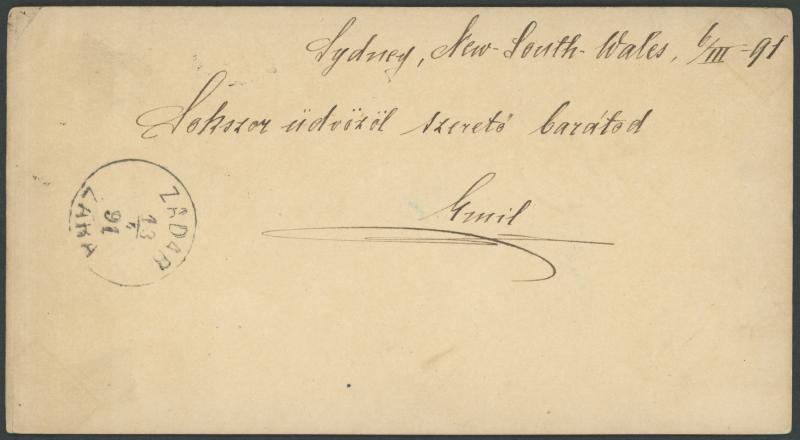 Sydney, New-South-Wales, 6/III-91
Sokszor üdvözöl szerető barátod
Emil
ZADAR
13
91
ZARA